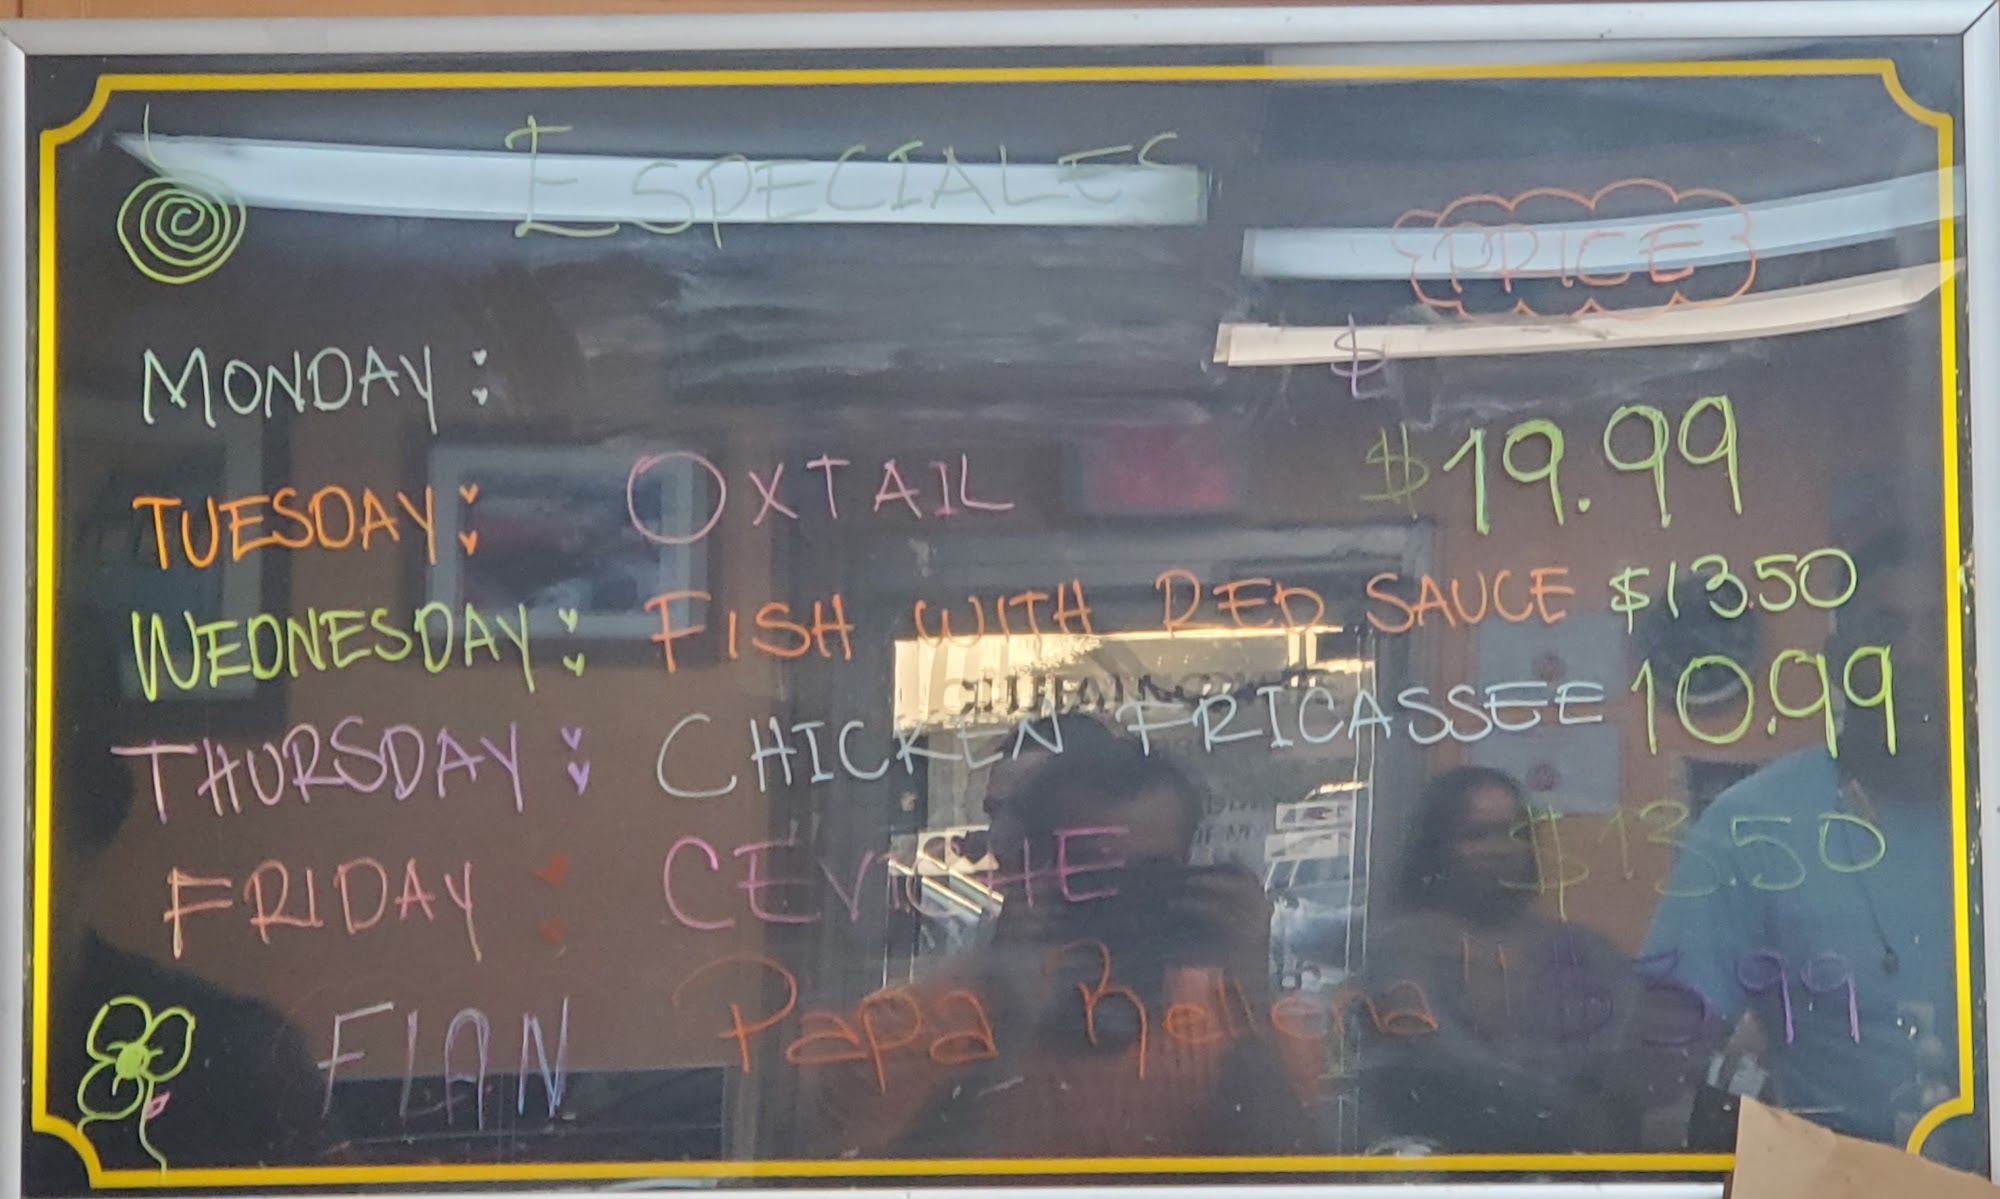 ESPECIALES
PRICE
MONDAY: $
TUESDAY: OXTAIL $19.99
WEDNESDAY: FISH WITH RED SAUCE $13.50
THURSDAY: CHICKEN FRICASSEE 10.99
FRIDAY: CEVICHE $13.50
FLAN Papa Rellena $3.99